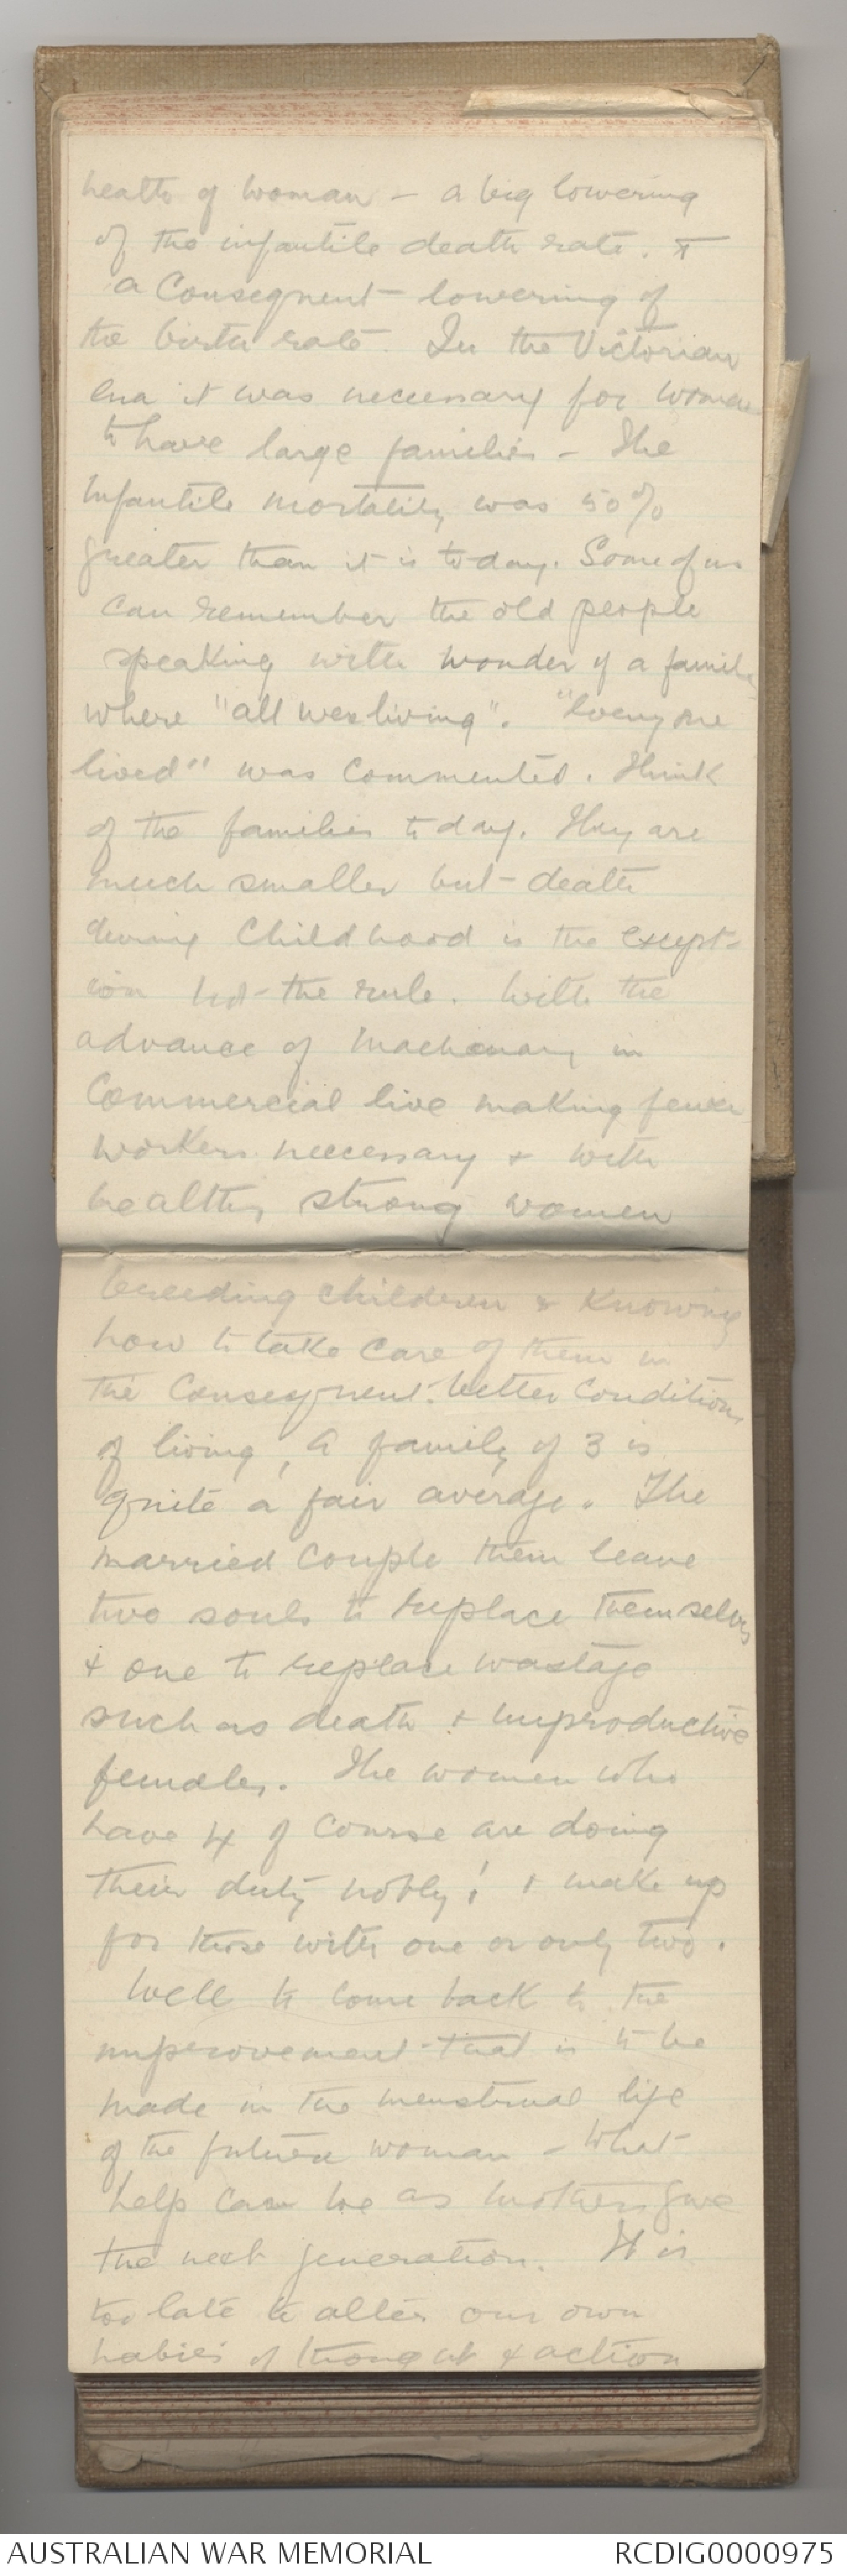 health of woman - a big lowering
of the infantile death rate. &
a Consequent lowering of
the birth rate. In the Victorian
era it was necessary for women
to have large families - The
Infantile mortality was 50%
greater than it is to-day. Some of us
can remember the old people
speaking with wonder of a family
where "all were living". "Every one
lived" was commented. Think
of the families today. They are
much smaller but - death
during Childhood is the except-
ion not the rule. With the
advance of machenary in
Commercial live making fewer
workers necessary & with
healthy strong women
breeding children & knowing
how to take care of them in
the Consequent better conditions
of living, a family of 3 is
quite a fair average. The
married couple them leave
two souls to replace themselves
& one to replace wastage
such as death & unproductive
females. The women who
have 4 of course are doing
their duty nobly! & make up
for those with one or only two.
Well to come back to the
improvement that is to be
made in the menstrual life
of the future woman - What
help can we as mothers give
the next generation. It is
too late to alter our own
habits of thought & action
AUSTRALIAN WAR MEMORIAL RCDIG0000975